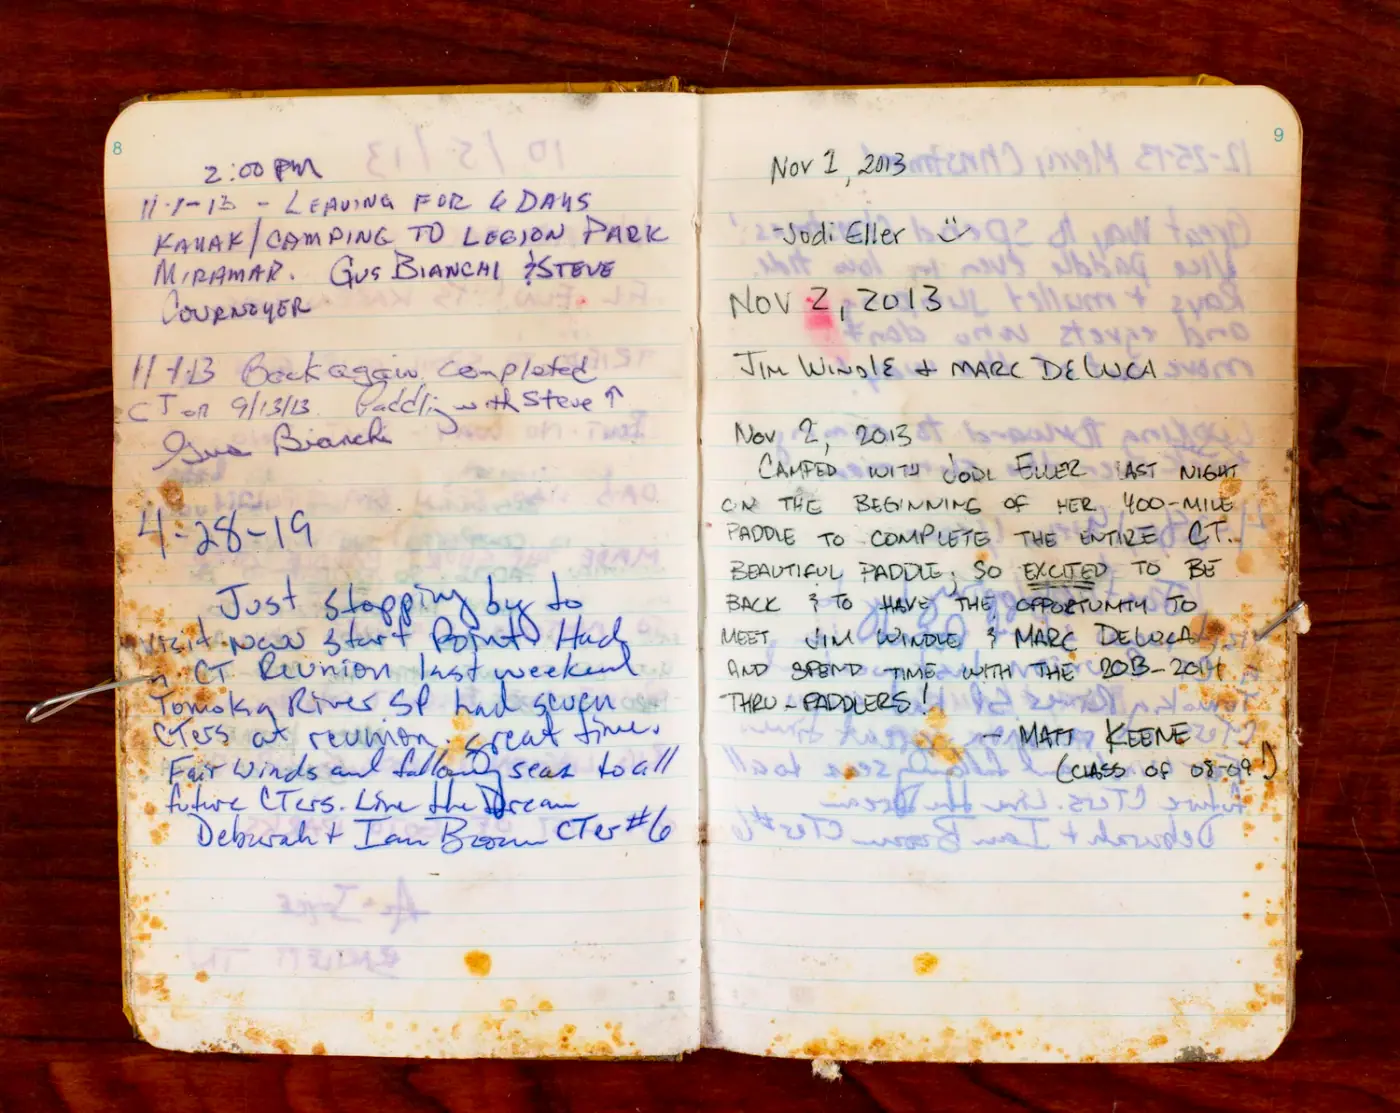 8
2:00 PM
11-1-13 - LEAVING FOR 6 DAYS
KAYAK/CAMPING TO LEGION PARK
MIRAMAR. GUS BIANCHI & STEVE
COURNOYER
11-1-13 Back again completed
CT on 9/13/13. Paddling with Steve ↑
Gus Bianchi
4-28-19
Just stopping by to
visit new start Point. Had
a CT Reunion last weekend
Tomoka River SP had seven
CTers at reunion. great time.
Fair winds and following seas to all
future CTers. Live the Dream
Deburah + Ian Brown CTer #6
9
Nov 1, 2013
-Jodi Eller
NOV 2, 2013
JIM WINDLE & MARC DELUCA
Nov 2, 2013
CAMPED WITH JODI ELLER LAST NIGHT
ON THE BEGINNING OF HER 400-MILE
PADDLE TO COMPLETE THE ENTIRE CT.
BEAUTIFUL PADDLE, SO EXCITED TO BE
BACK & TO HAVE THE OPPORTUNITY TO
MEET JIM WINDLE & MARC DELUCA
AND SPEND TIME WITH THE 2013-2014
THRU-PADDLERS!
- MATT KEENE
(CLASS OF 08-09!)